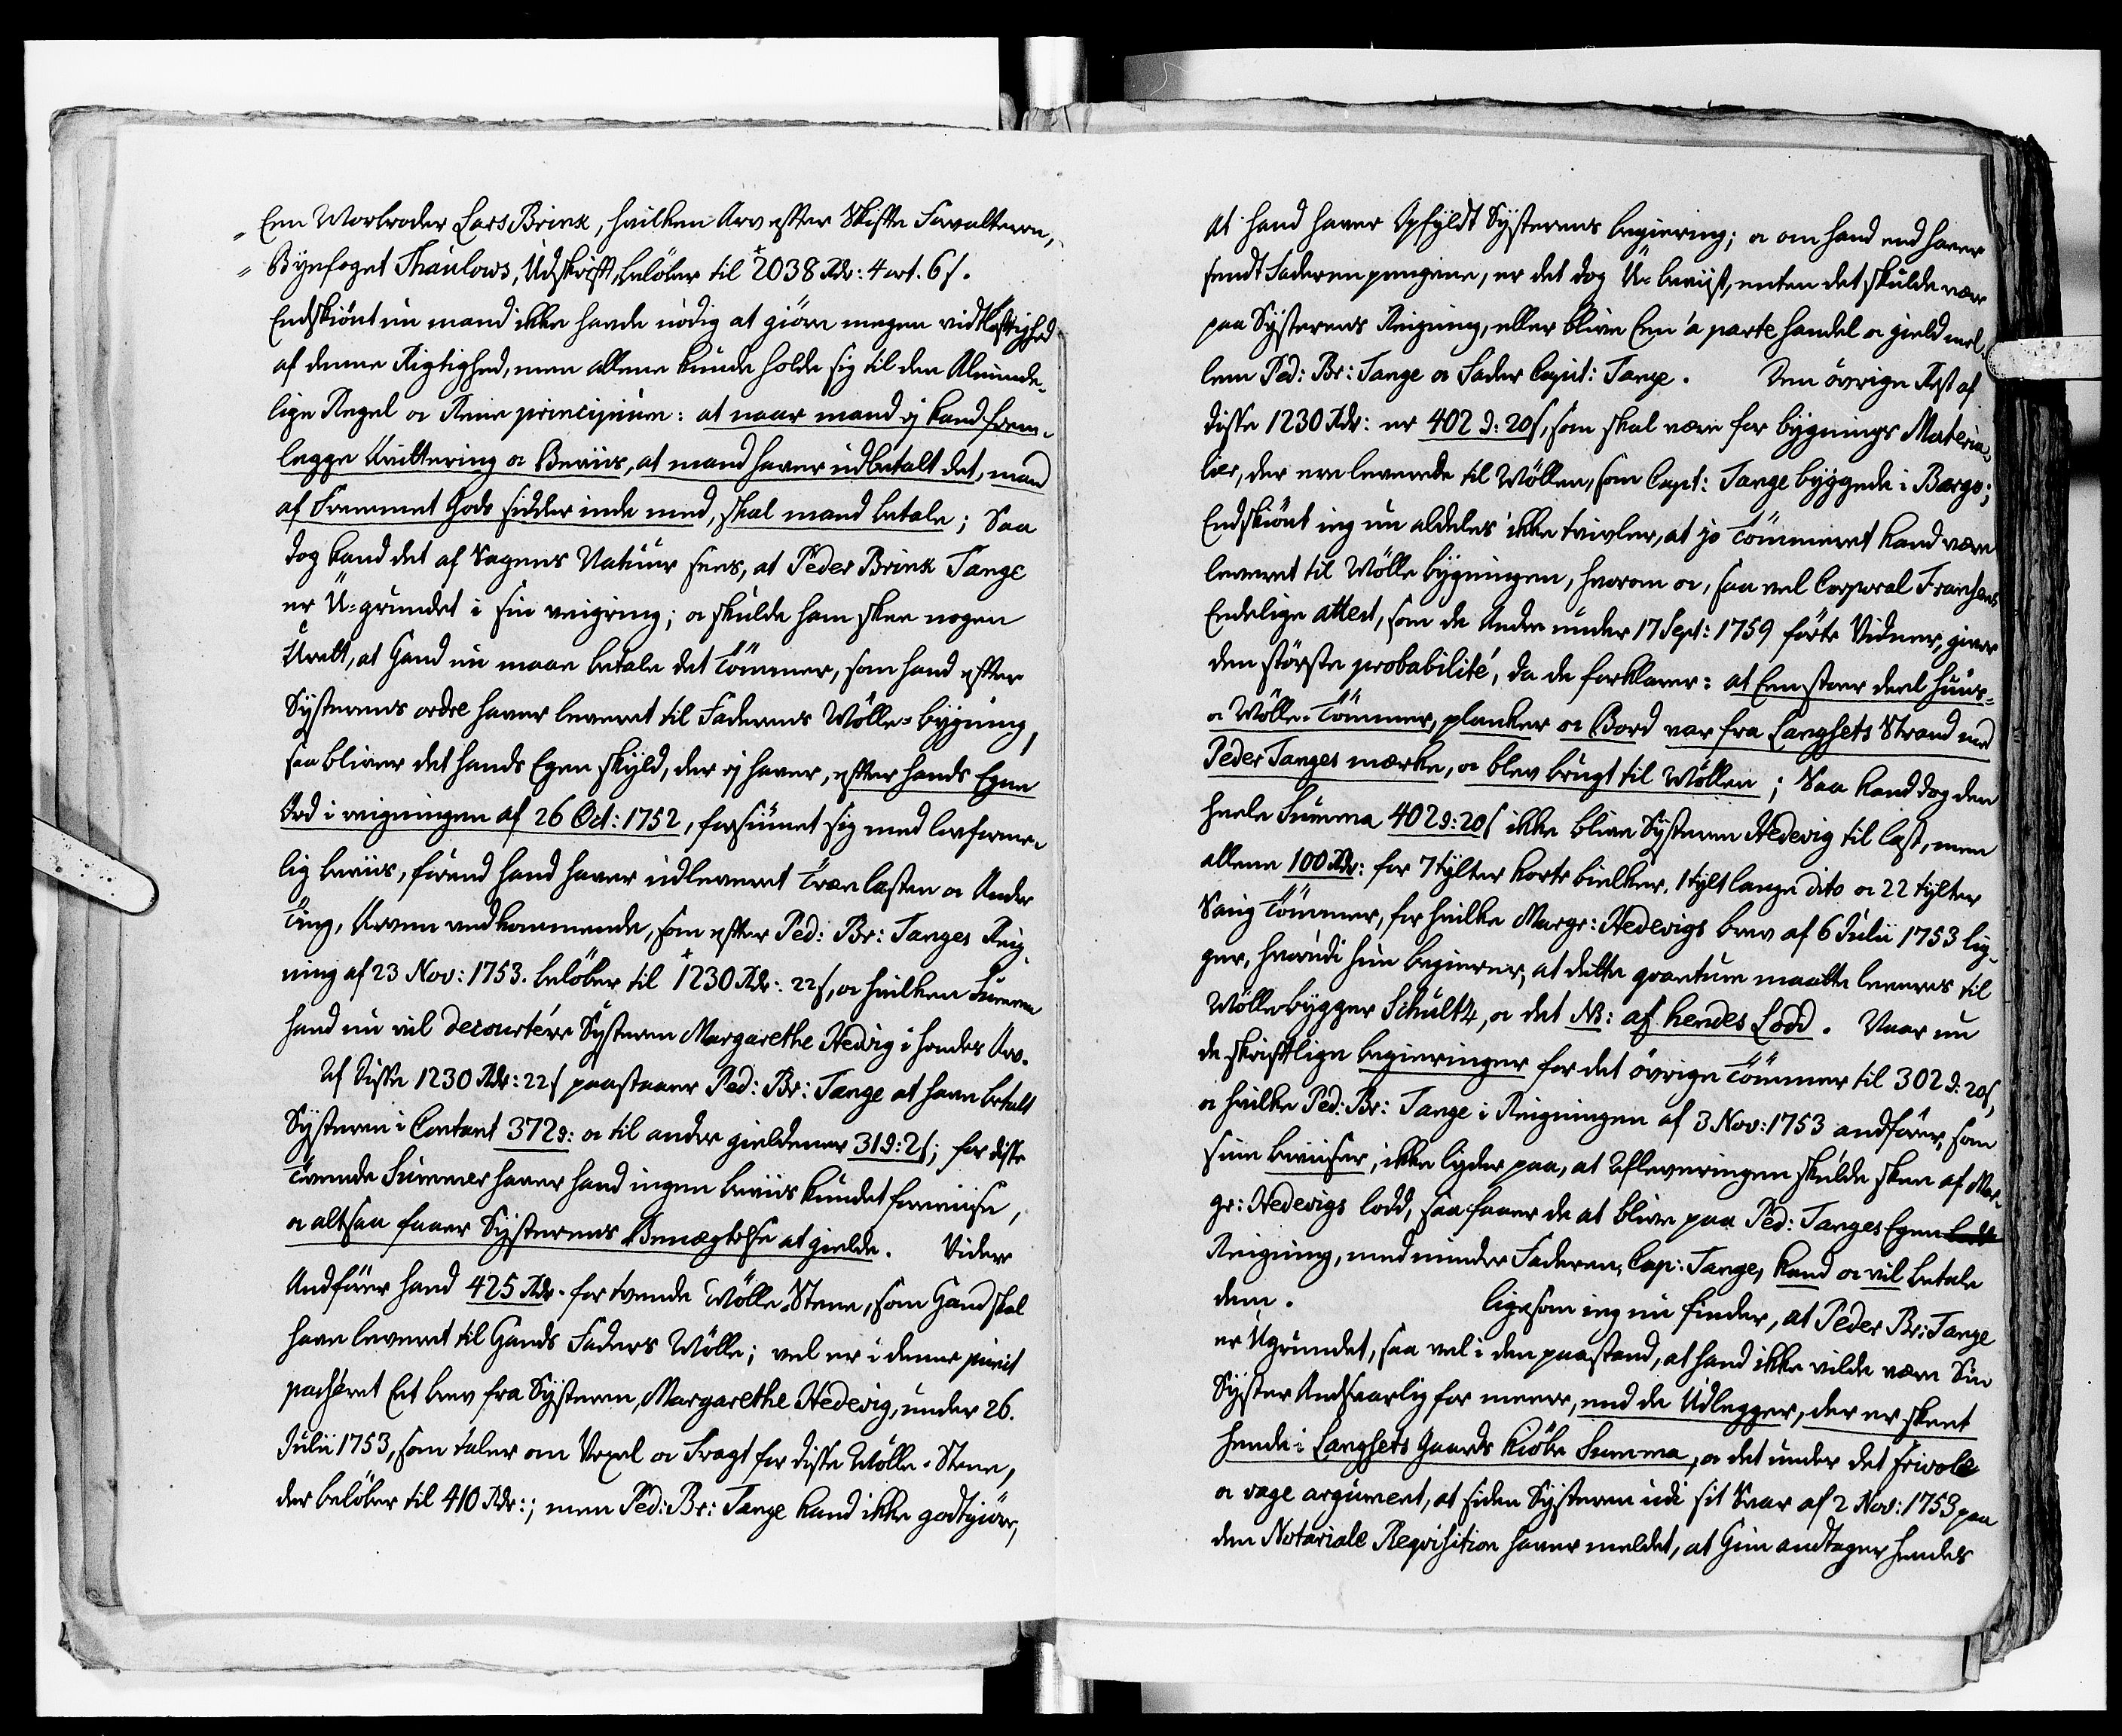 „ Een Morbroder Lars Brinx, hvilken Arv efter Skifte Forvalteren,
„ Byefoget Thaulows, Udskrifft, beløber til 2038 Rdr: 4 ort. 6 s.
Endskiönt nu mand ikke havde nödig at giöre megen vidtløftighed
af denne Rigtighed, men allene kunde holde sig til den Alminde-
lige Regel og Rene principium: at naar mand ej kand frem-
legge Qvittering og Beviis, at mand haver udbetalt det, mand
af Fremmet Gods sidder inde med, skal mand betale; Saa
dog kand det af Sagens Natuur sees, at Peder Brinx Tange
er U-grundet i sin veigring; og skulde ham skee nogen
Urett, at Hand nu maae betale det Tömmer, som hand efter
Systerens ordre haver leveret til Faderens Mölle-bygning,
saa bliver det hands Egen skyld, der ej haver, efter hands Egne
Ord i reigningen af 26 Oct: 1752, forsiunet sig med lovforme-
lig beviis, förend hand haver udleveret Træelasten og Andre
Ting, Arven vedkommende, som efter Ped: Br: Tanges Reig-
ning af 23 Nov: 1753. belöber til 1230 Rdr: 22 s, og hvilken Summa
hand nu vil decourtére Systeren Margarethe Hedvig i hendes Arv.
Af Disse 1230 Rdr: 22 s paastaaer Ped: Br: Tange at have betalt
Systeren i Contant 372 d: og til andre gieldener 31 d: 2 s; for disse
Tvende Summer haver hand ingen beviis kundet fremvise,
og altsaa faaer Systerens Benægtelse at gielde. Videre
Andförer hand 425 Rdr. for tvende Mölle-Stene, som Hand skal
have leveret til Hands Faders Mölle; vel er i denne punct
passéret Eet brev fra Systeren, Margarethe Hedevig, under 26.
Julii 1753, som taler om Vexel og Fragt for disse Mölle-Stene,
der belöber til 410 Rdr:; men Ped: Br: Tange kand ikke godtgiöre,
At hand haver Opfyldt Systerens begiering; og om hand end haver
sendt Faderen pengene, er det dog U-beviist, enten det skulde være
paa Systerens Reigning, eller blive Een á parte handel og gield mel-
lem Ped: Br: Tange og Fader Capit: Tange. Den övrige Rest af
disse 1230 Rdr: er 402 d: 20 s, som skal være for bygnings Materia-
lier, der ere leverede til Möllen, som Capt: Tange byggede i Bargo;
Endskiönt ieg nu aldeles ikke tvivler, at jo Tömmeret kand være
leveret til Mölle bygningen, hvorom og, saa vel Corporal Franzens
Eedelige attest, som de Andre under 17 Sept: 1759 förte Vidner, giver
den störste probabilité, da de forklarer: at Een stoer deel huus-
og Mölle-Tömmer, planker og Bord var fra Langsets Strand med
Peder Tanges mærke, og blev brugt til Möllen; Saa kand dog den
heele Summa 402 d: 20 s ikke blive Systeren Hedevig til last, men
allene 100 Rdr: for 7 tylter korte bielker, 1 tylt lange dito og 22 tylter
Saug Tömmer, for hvilke Margr: Hedevigs brev af 6 Julii 1753 lig-
ger, hvorudi hun begierer, at dette qvantum maatte leveres til
Möllebygger Schultz, og det NB: af hendes Lodd. Naar nu
de skriftlige begieringer for det övrige Tömmer til 302 d: 20 s,
og hvilke Ped: Br: Tange i Reigningen af 3 Nov: 1753 andförer, som
sine beviiser, ikke lyder paa, at Afleveringen skulde skee af Mar-
gr: Hedevigs lodd, saa faaer de at blive paa Ped: Tanges Egen
Reigning, med minder Faderen, Cap: Tange, kand og vil betale
dem. Ligesom ieg nu finder, at Peder Br: Tange
er Ugrundet, saa vel i den paastand, at hand ikke vilde være Sin
Syster Andsvarlig for meere, end de Udlegger, der er skeet
hende i Langsets Gaards Kiöbe Summa, og det under det frivole
og vage argument, at siden Systeren udi sit Svar af 2 Nov: 1753 paa
den Notariale Reqvisition haver meldet, at Hun andtager hendes